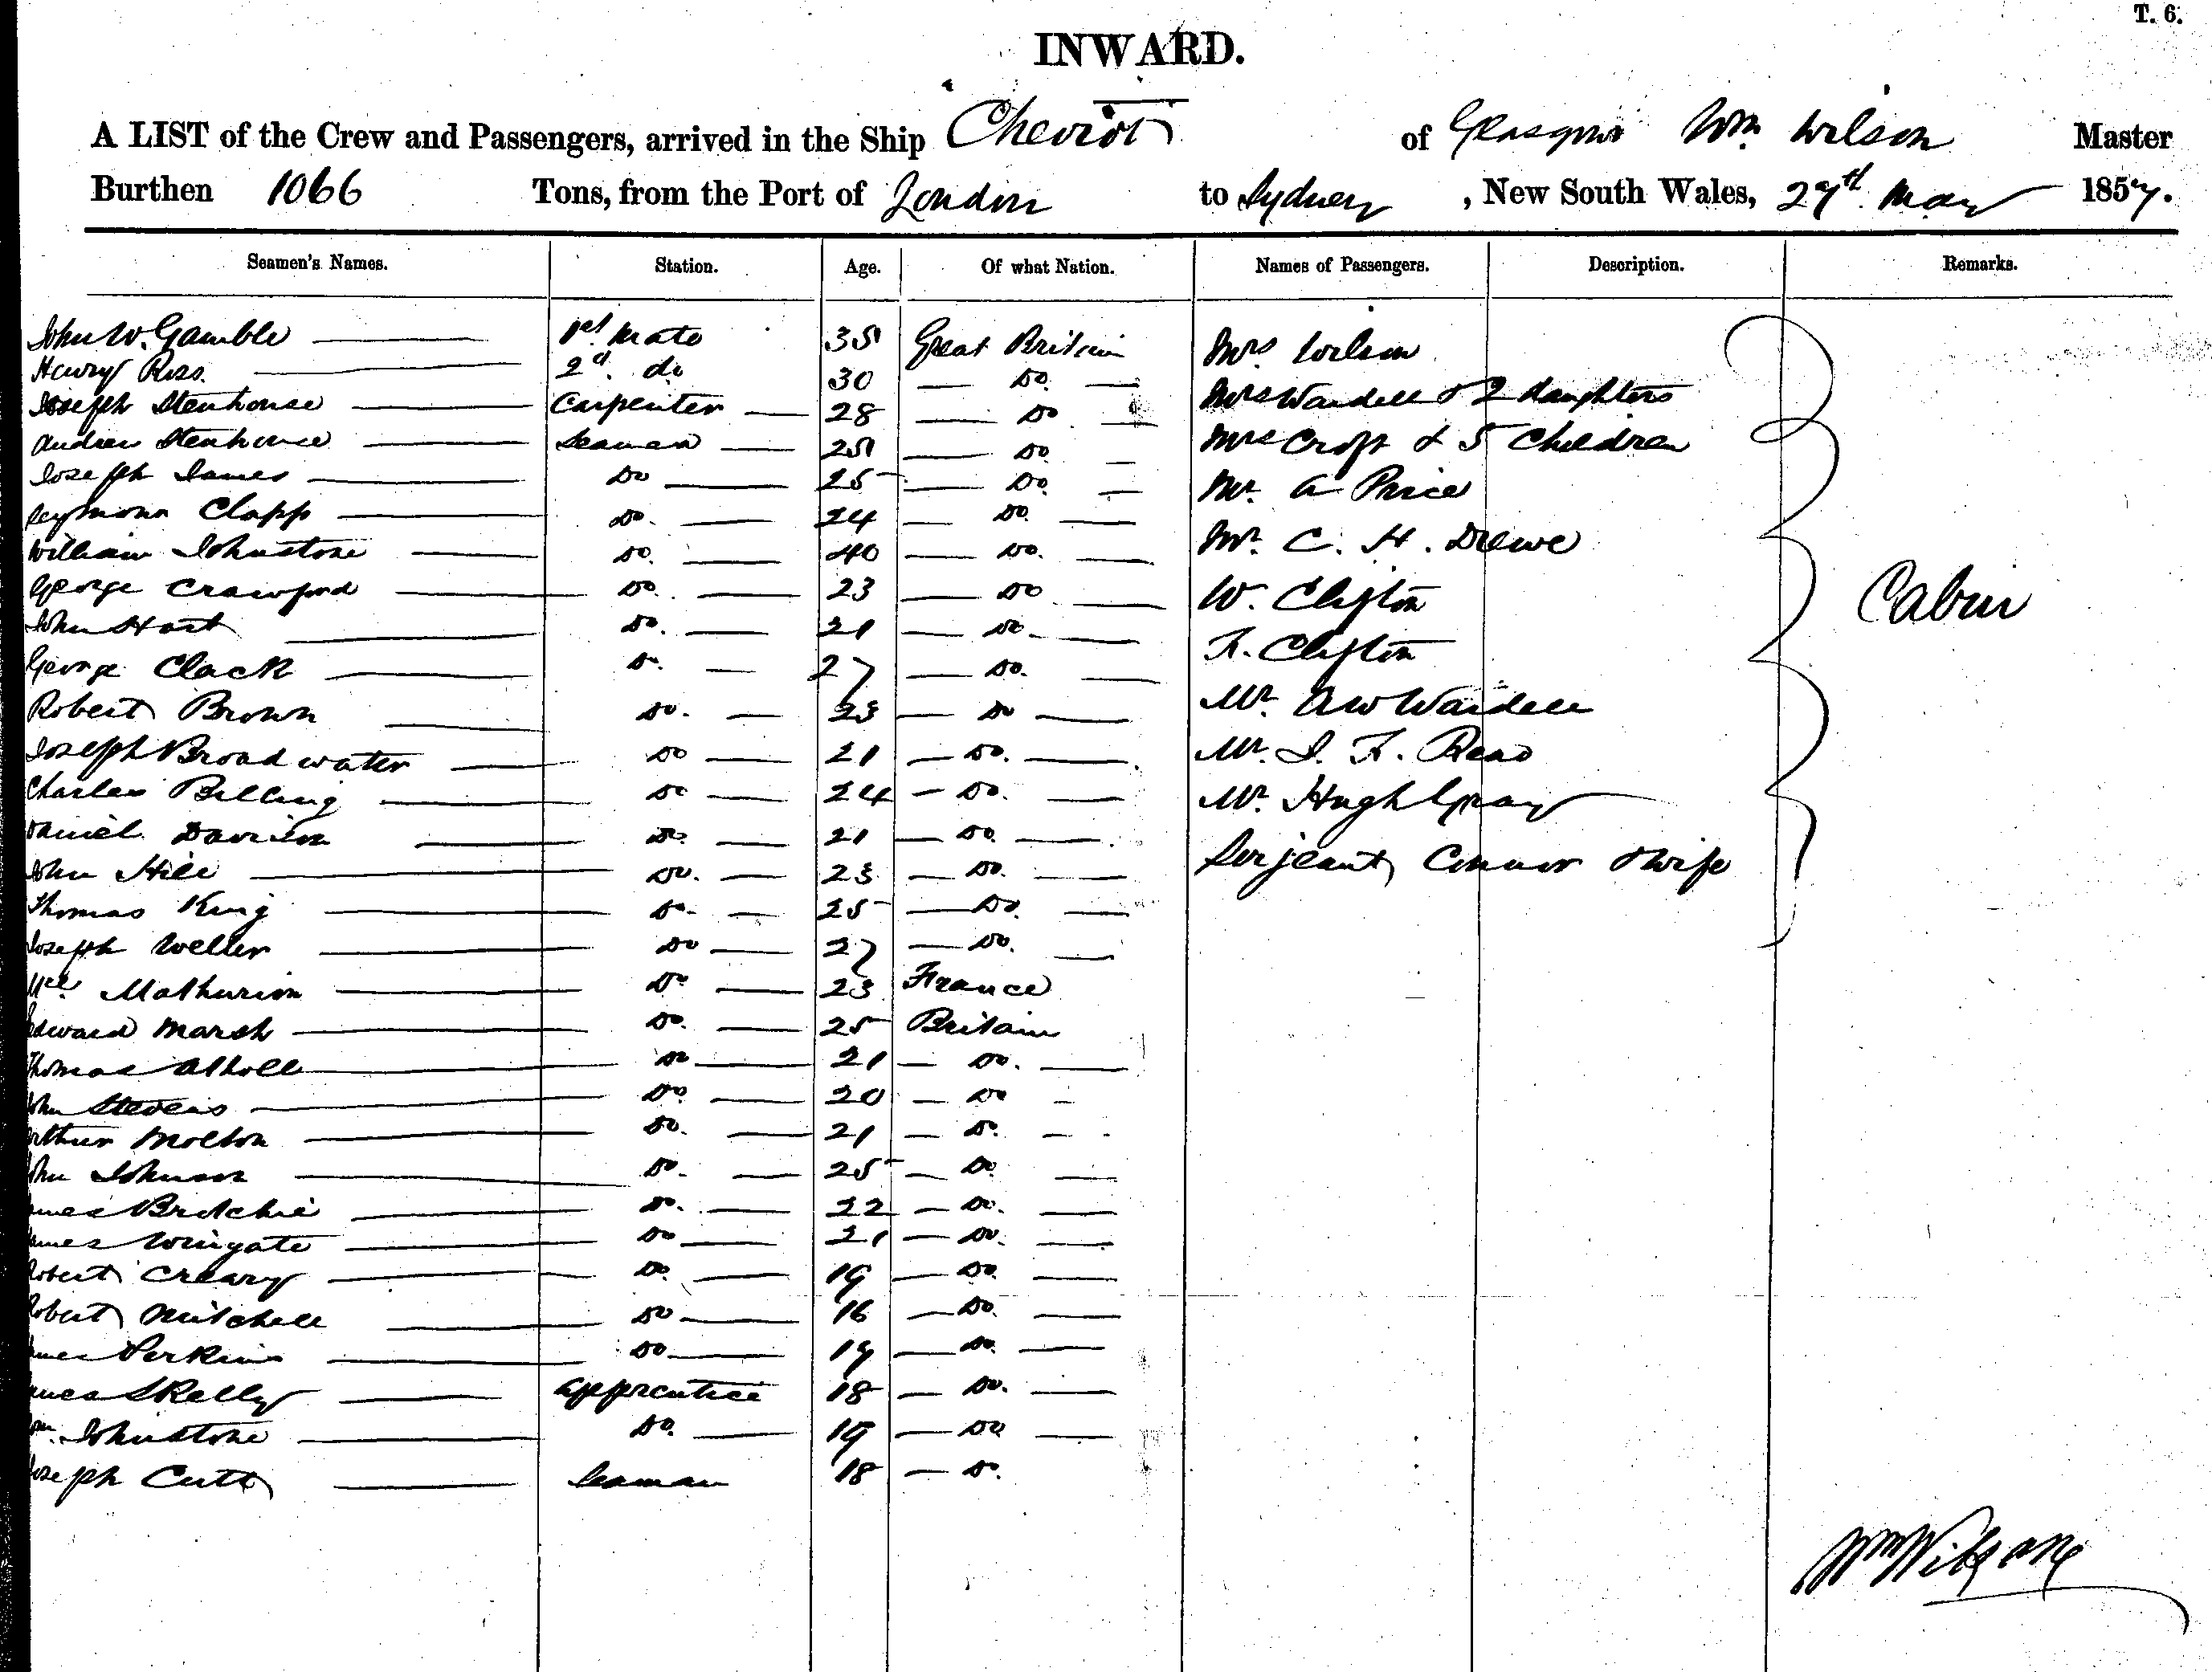 T. 6.
INWARD.
A LIST of the Crew and Passengers, arrived in the Ship Cheviot of Glasgow Wm. Wilson Master
Burthen 1066 Tons, from the Port of London to Sydney, New South Wales, 29th May 1857.
Seamen's Names. Station. Age. Of what Nation. Names of Passengers. Description. Remarks.
John W. Gamble 1st Mate 35 Great Britain Mrs Wilson
Henry Ross. 2d. do 30 Do.
Joseph Stenhouse Carpenter 28 Do Mrs Wardell & 2 daughters
Andrew Stenhouse Seaman 25 Do Mrs Croft & 5 Children
Joseph James Do 25 Do. Mr. A Price
Seymour Clapp Do. 24 Do.
William Johnstone Do. 40 Do. Mr. C. H. Drewe
George Crawford Do. 23 Do W. Clifton Cabin
John Hart Do. 21 Do. F. Clifton
George Clack Do. 27 Do.
Robert Brown Do. 23 Do Mr. A W Wardell
Joseph Broadwater Do 21 Do. Mr. J. F. Read
Charles Billing Do 24 Do. Mr. Hugh Gray
Daniel Davison Do. 21 Do.
John Hill Do. 23 Do. Serjeant Connor & wife
Thomas King Do. 25 Do.
Joseph Weller Do 27 Do.
Mathurin Do 23 France
Edward Marsh Do. 25 Britain
Thomas Atholl Do 21 Do.
John Stevens Do. 20 Do
Arthur Molton Do. 21 Do.
John Johnson Do. 25 Do.
James Britchie Do. 22 Do.
James Wingate Do 21 Do.
Robert Creary Do. 19 Do.
Robert Mitchell Do 16 Do.
James Perkins Do 19 Do.
James Skelly Apprentice 18 Do.
Wm. Johnstone Do. 19 Do
Joseph Cutt Seaman 18 Do.
Wm Wilson